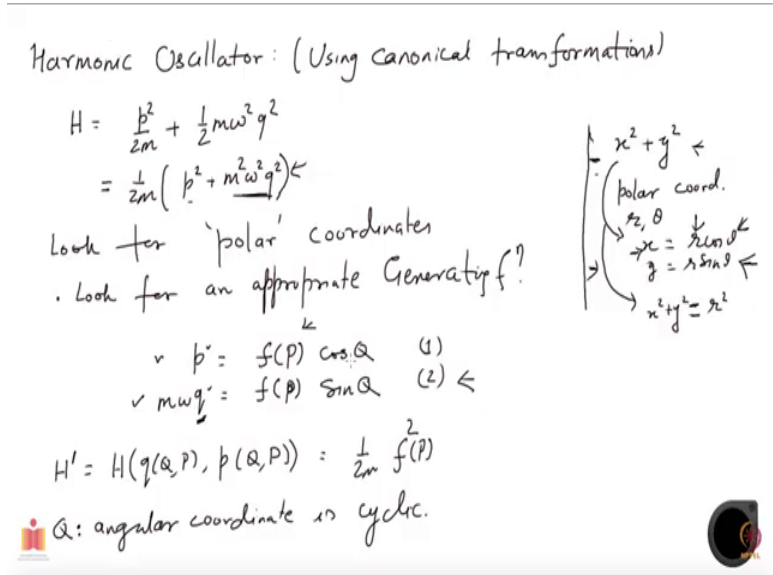 Harmonic Oscillator: (Using canonical transformations)
H = p²/2m + 1/2 mω²q²
= 1/2m (p² + m²ω²q²) ←
Look for 'polar' coordinates
. Look for an appropriate Generating f?
✓ p = f(P) cosQ (1)
✓ mωq = f(P) SinQ (2) ←
H' = H(q(Q,P), p(Q,P)) = 1/2m f²(P)
Q: angular coordinate is cyclic.
x² + y² ←
polar coord.
r, θ
→ x = r cosθ
y = r sinθ ←
x²+y² = r²